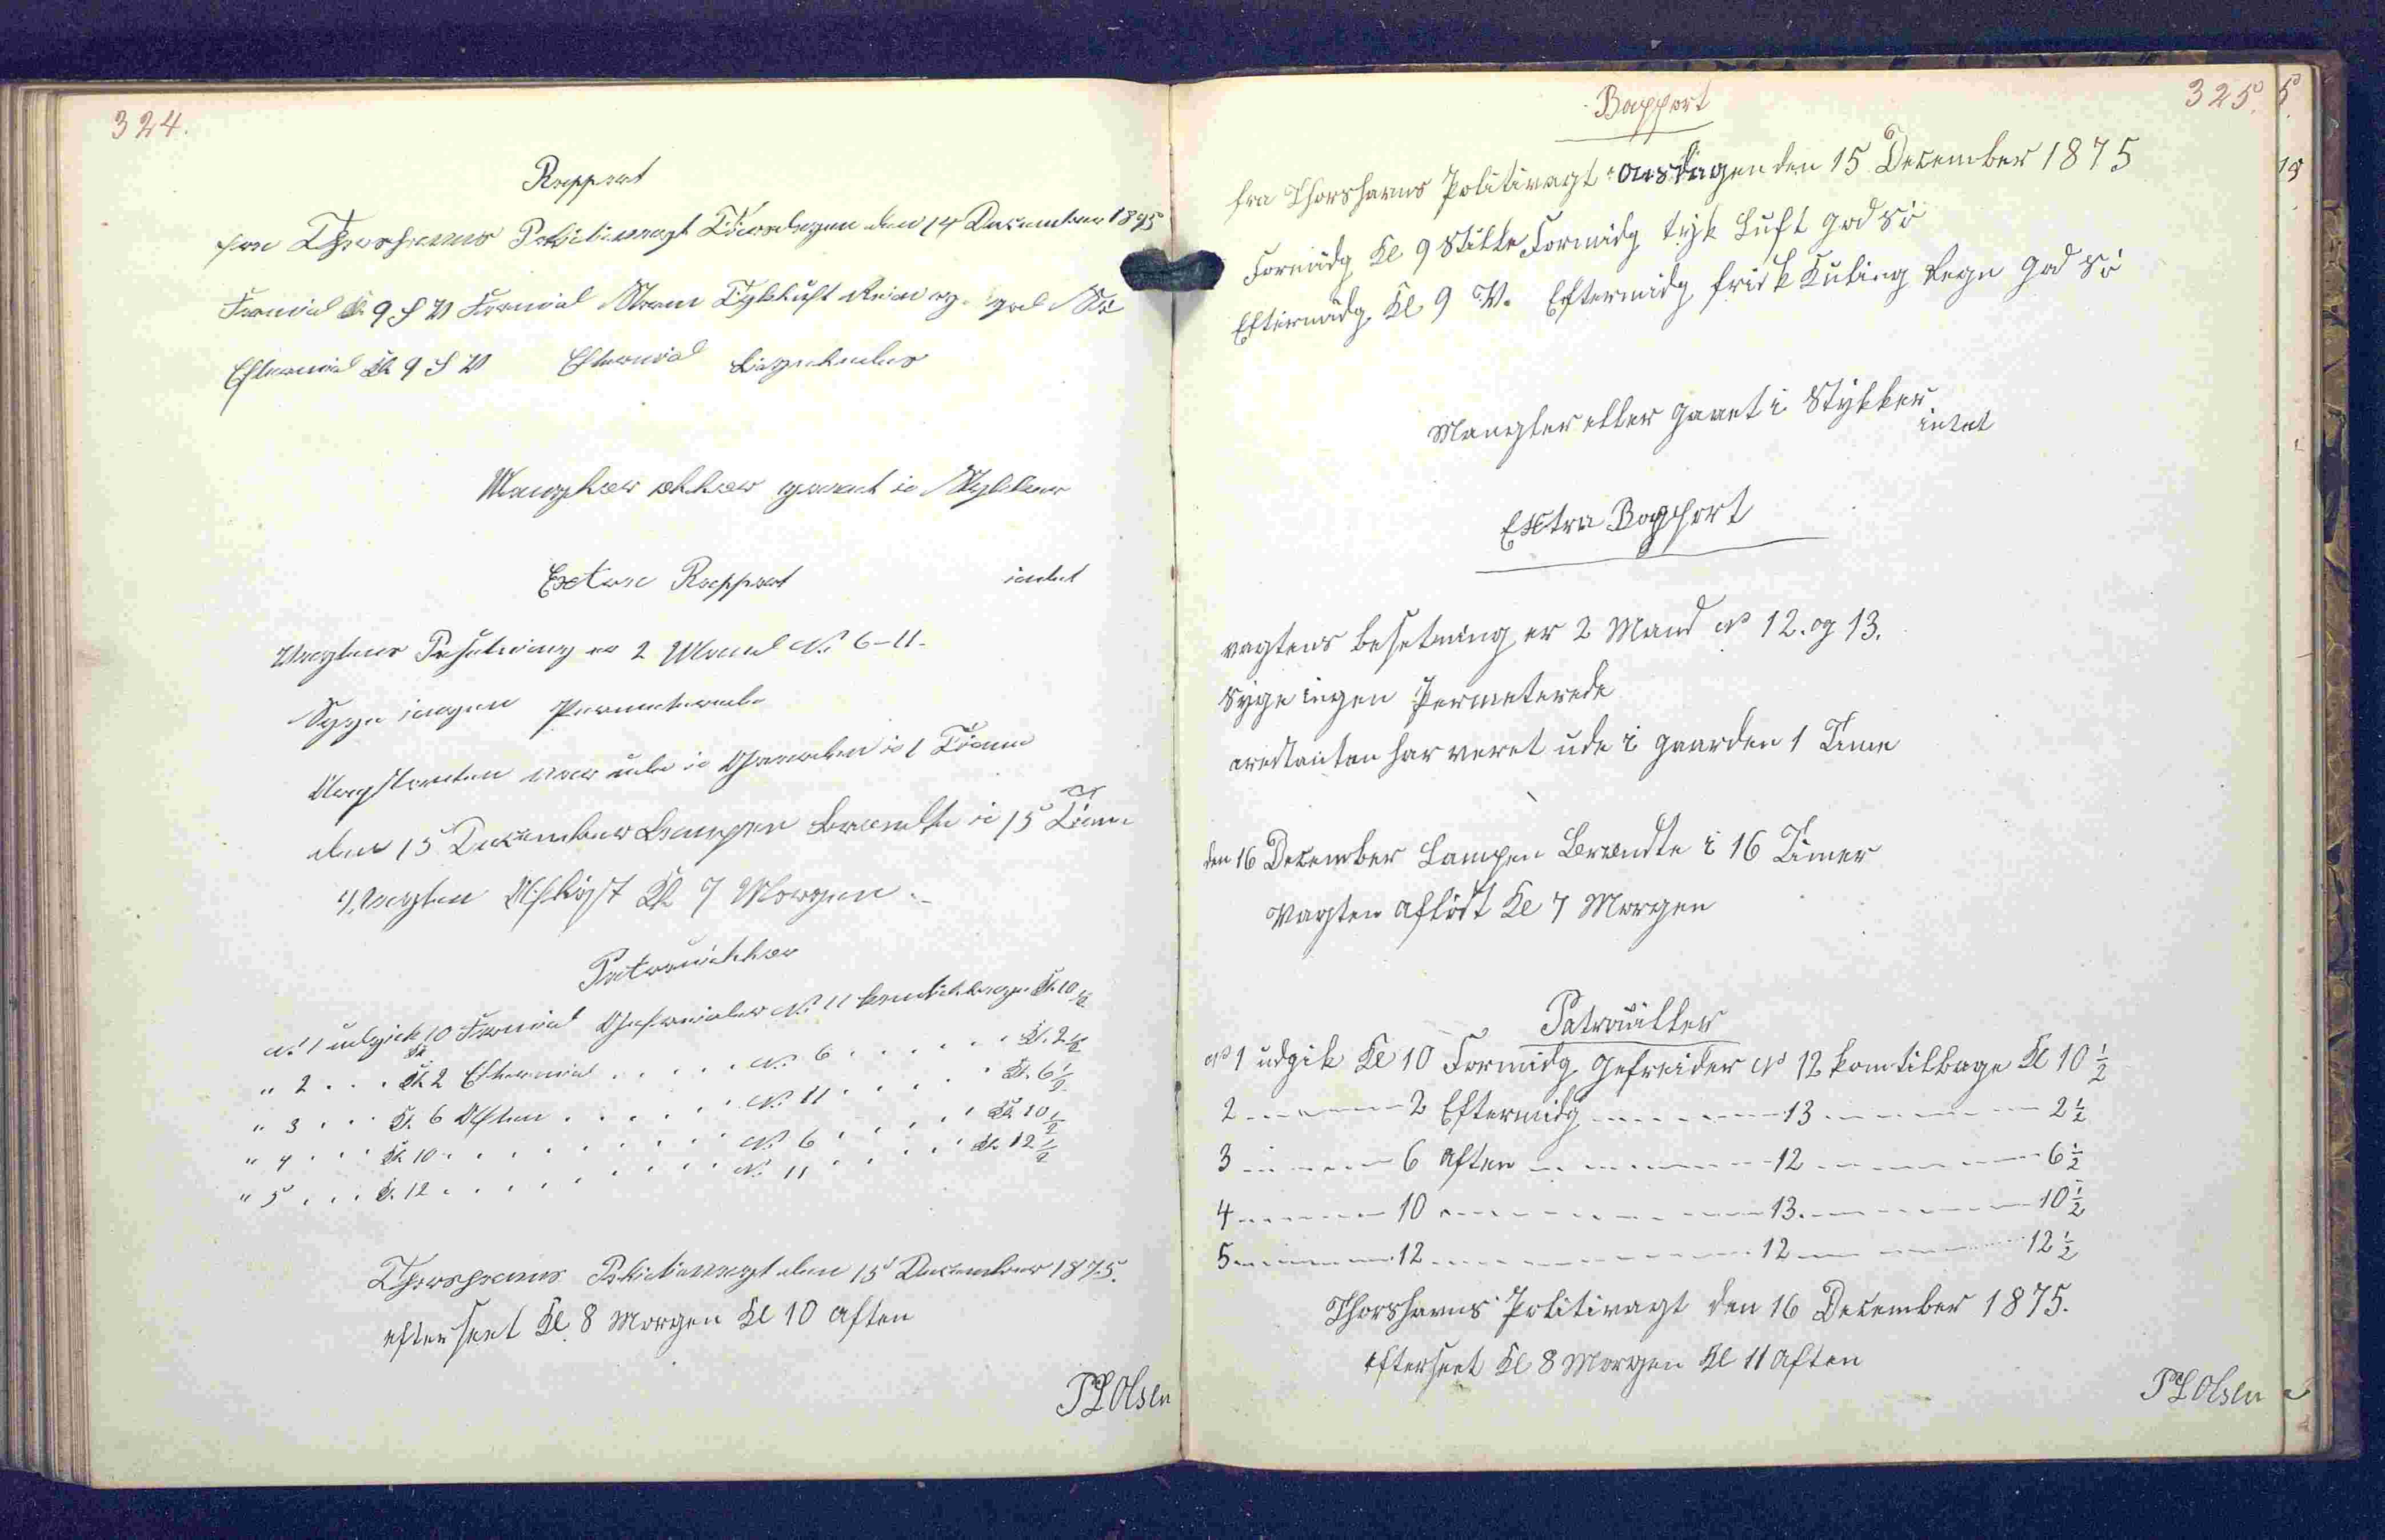 324.
Rapport
fra Thorshavns Politivagt Tirsdagen den 14 December 1875
Formid Kl. 9 S V Formid Strøm Tyk Luft Rein og god Sø
Eftermid Kl 9 S V Eftermid Ligeledes
Mangler eller gaaet i Stykker
Extra Rapport intet
Vagtens Besetning er 2 Mand No. 6-11.
Syge ingen Permeterede
Arestanten var ude i Gaarden i 1 Time
den 15 December Lampen brændte i 15 Timer
Vagten Afløst Kl 7 Morgen
Patrouiller
No. 1 udgick Kl 10 Formid Gefreider No. 11 kom tilbage Kl. 10 1/2
" 2 . . . Kl. 2 Eftermid . . . . . No. 6 . . . . . . Kl. 2 1/2
" 3 . . . Kl. 6 Aften . . . . . . No. 11 . . . . . Kl. 6 1/2
" 4 . . . Kl. 10 . . . . . . . . . No. 6 . . . . . Kl. 10 1/2
" 5 . . . Kl. 12 . . . . . . . . . No. 11 . . . . . Kl. 12 1/2
Thorshavns Politivagt den 15 December 1875.
efterseet Kl. 8 Morgen Kl 10 Aften
P L Olsen
325.
Rapport
fra Thorshavns Politivagt Onsdagen den 15 December 1875
Formidg Kl 9 Stille Formidg tyk Luft god Sö
Eftermidg Kl 9 V. Eftermidg frisk Kuling Regn god Sö
Mangler eller gaaet i Stykker
intet
Extra Rapport
vagtens besetning er 2 Mand No 12. og 13.
Syge ingen Permeterede
arestanten har veret ude i gaarden 1 Time
den 16 December Lampen Brændte i 16 Timer
Vagten afløst Kl 7 Morgen
Patrouiller
No 1 udgik Kl 10 Formidg Gefreider No 12 kom tilbage Kl 10 1/2
2 -------- 2 Eftermidg -------- 13 -------- 2 1/2
3 -------- 6 Aften -------- 12 -------- 6 1/2
4 -------- 10 -------- 13. -------- 10 1/2
5 -------- 12 -------- 12 -------- 12 1/2
Thorshavns Politivagt den 16 December 1875.
Efterseet Kl 8 Morgen Kl 11 Aften
P L Olsen